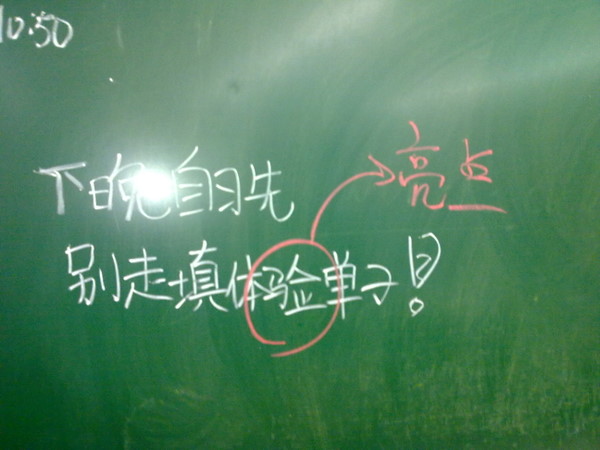 10:50
下晚自习先
别走填体验单子!
亮点